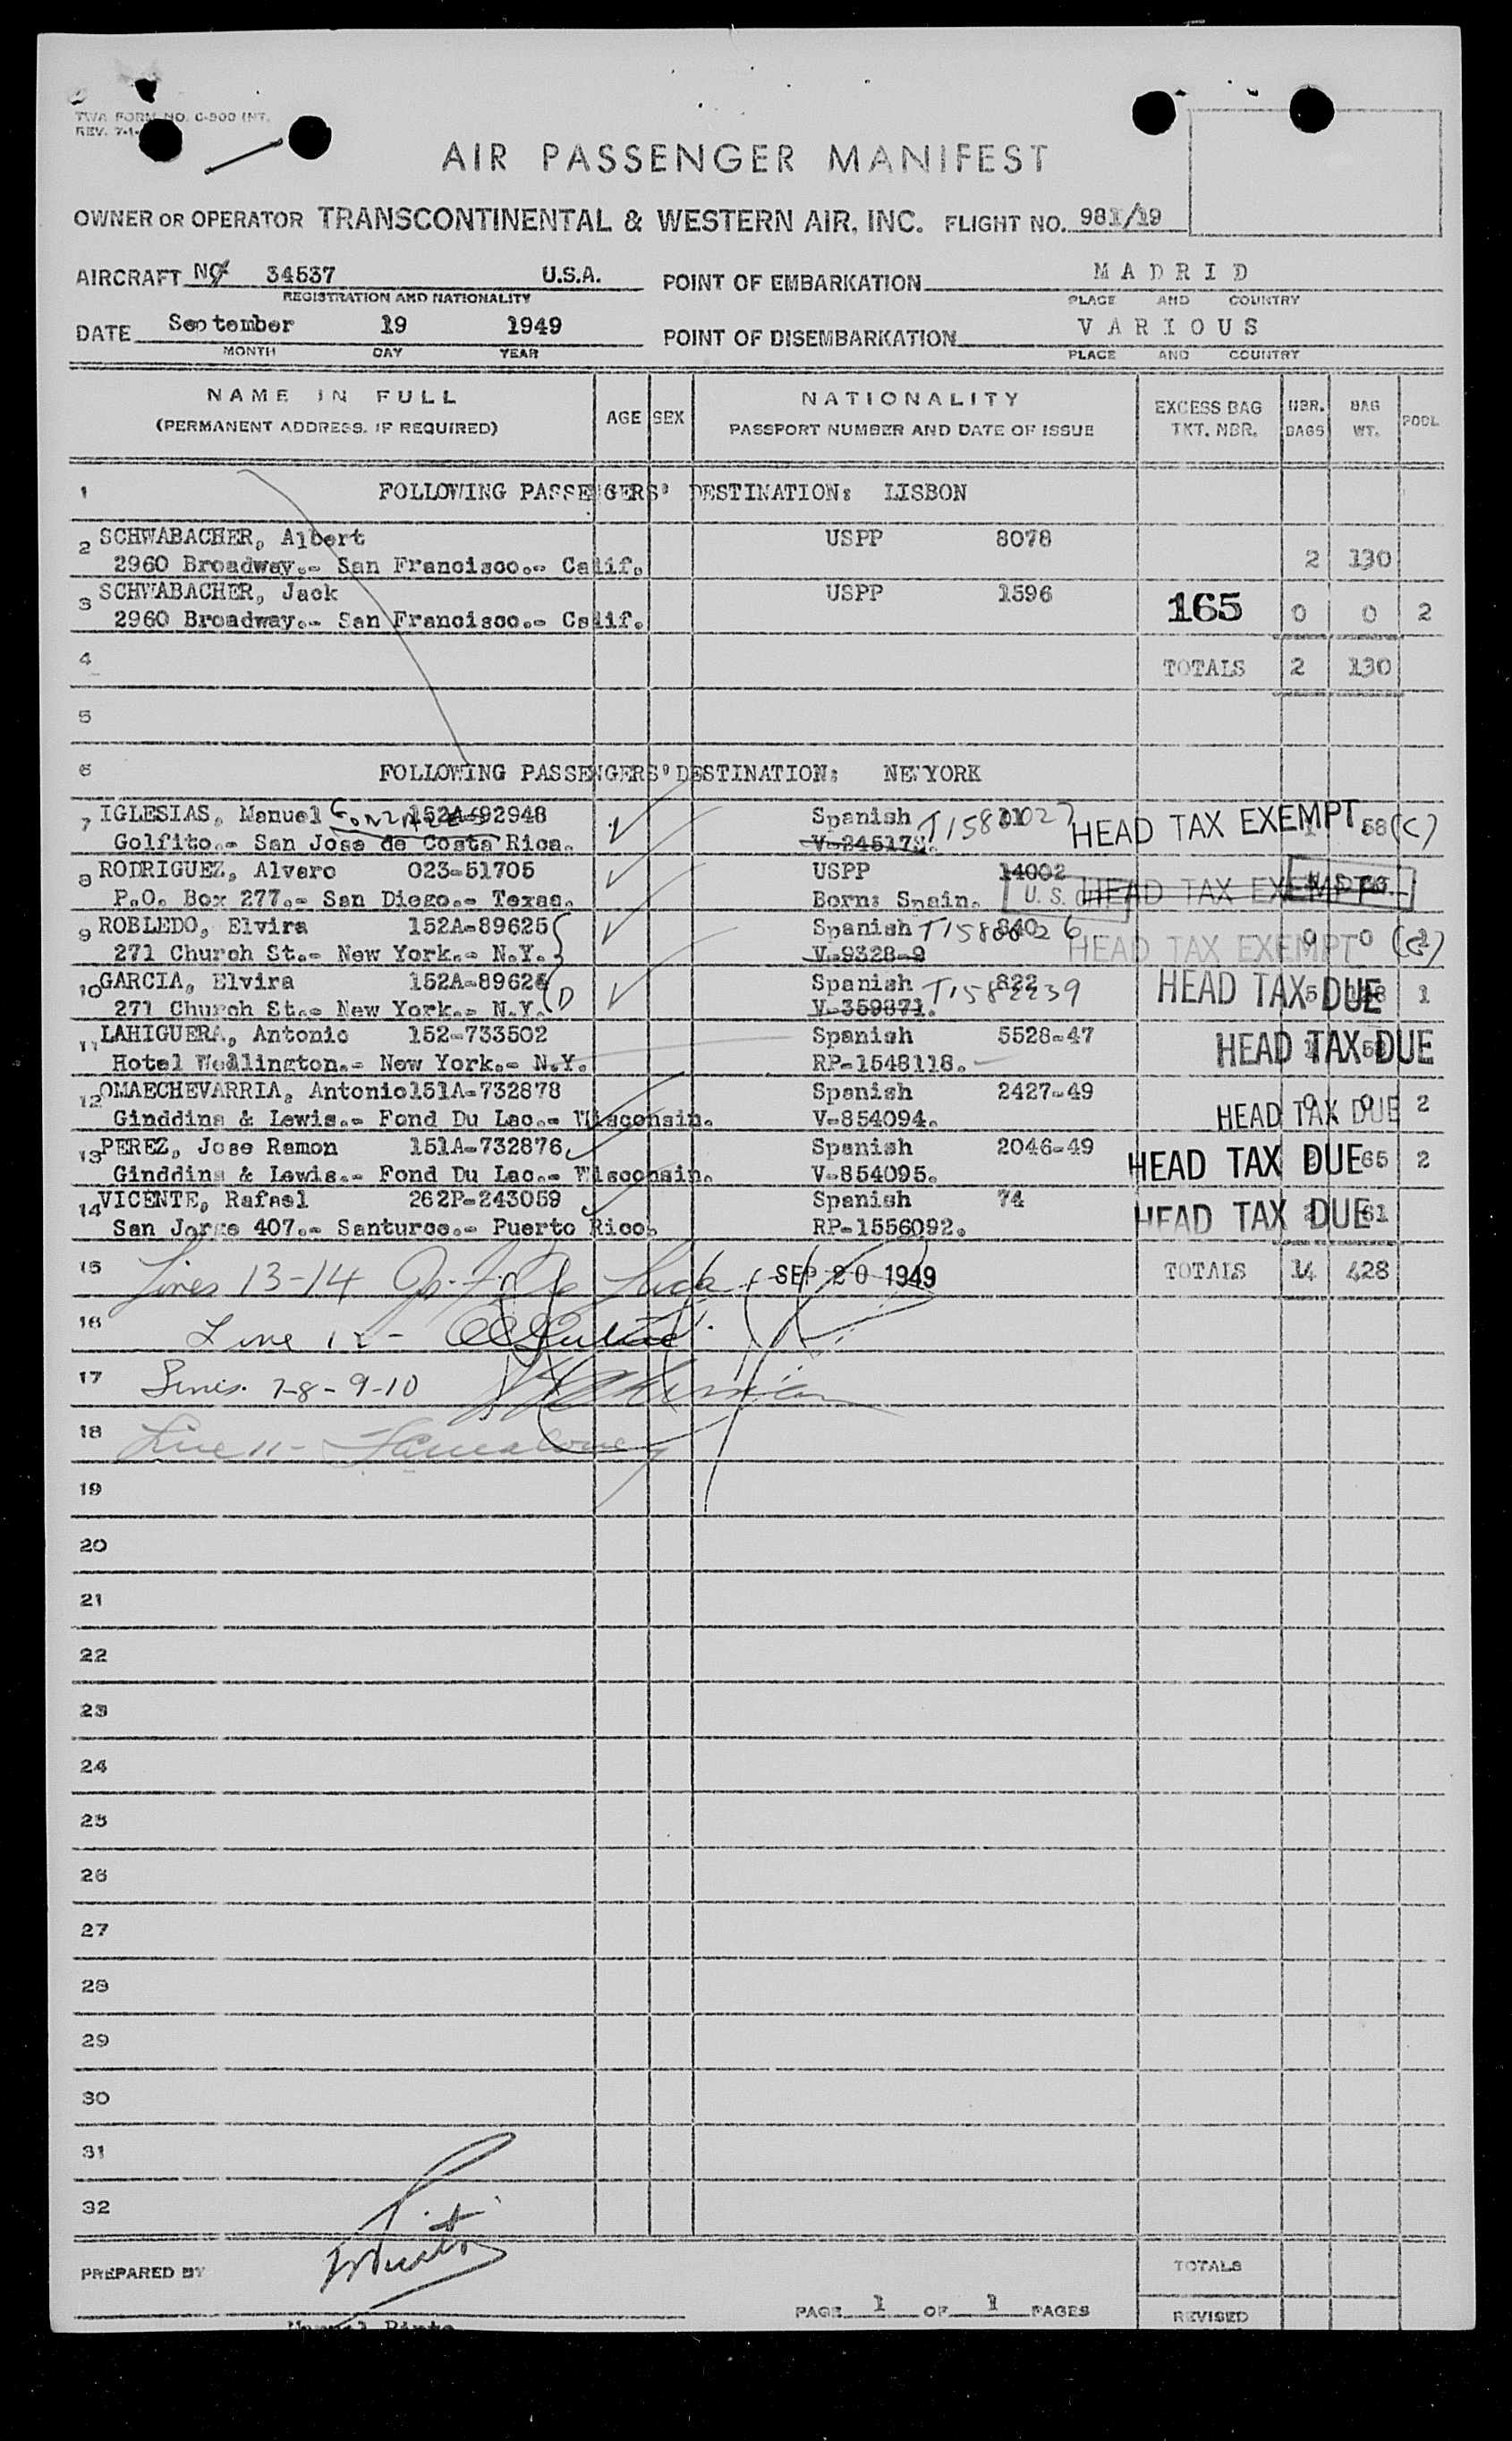 TWA FORM NO. C-500 INT.
REV. 7-1-
AIR PASSENGER MANIFEST
OWNER OR OPERATOR TRANSCONTINENTAL & WESTERN AIR, INC. FLIGHT NO. 981/19
AIRCRAFT 34537 U.S.A. POINT OF EMBARKATION MADRID
REGISTRATION AND NATIONALITY PLACE AND COUNTRY
DATE September 19 1949 POINT OF DISEMBARKATION VARIOUS
MONTH DAY YEAR PLACE AND COUNTRY
NAME IN FULL AGE SEX NATIONALITY EXCESS BAG NBR. BAG POOL
(PERMANENT ADDRESS, IF REQUIRED) PASSPORT NUMBER AND DATE OF ISSUE TKT. NBR. BAGS WT.
1 FOLLOWING PASSENGERS' DESTINATION: LISBON
2 SCHWABACHER, Albert USPP 8078
2960 Broadway.- San Francisco.- Calif. 2 130
3 SCHWABACHER, Jack USPP 1596
2960 Broadway.- San Francisco.- Calif. 165 0 0 2
4 TOTALS 2 130
5
6 FOLLOWING PASSENGERS' DESTINATION: NEWYORK
7 IGLESIAS, Manuel 152A-92948 Spanish HEAD TAX EXEMPT 58 (C)
Golfito.- San Jose de Costa Rica.
8 RODRIGUEZ, Alvaro 023-51705 USPP 14002
P.O. Box 277.- San Diego.- Texas. Born: Spain. HEAD TAX EXEMPT
9 ROBLEDO, Elvira 152A-89625 Spanish 840
271 Church St.- New York.- N.Y. V-9328-9 HEAD TAX EXEMPT 0 0
10 GARCIA, Elvira Spanish 822 T1582239 HEAD TAX DUE 1
271 Church St.- New York.- N.Y. V-359871.
11 LAHIGUERA, Antonio 152-733502 Spanish 5528-47 HEAD TAX DUE
Hotel Wellington.- New York.- N.Y. RP-1548118.
12 OMAECHEVARRIA, Antonio 151A-732878 Spanish 2427-49
Ginddins & Lewis.- Fond Du Lac.- Wisconsin. V-854094. HEAD TAX DUE 0 0 2
13 PEREZ, Jose Ramon 151A-732876 Spanish 2046-49 HEAD TAX DUE 65 2
Ginddins & Lewis.- Fond Du Lac.- Wisconsin. V-854095.
14 VICENTE, Rafael 262P-243059 Spanish 74 HEAD TAX DUE 61
San Jorge 407.- Santurce.- Puerto Rico. RP-1556092.
15 Lines 13-14 SEP 20 1949 TOTALS 14 428
16 Line 12 -
17 Lines. 7-8-9-10
18 Line 11 -
19
20
21
22
23
24
25
26
27
28
29
30
31
32
PREPARED BY TOTALS
PAGE 1 OF 1 PAGES REVISED